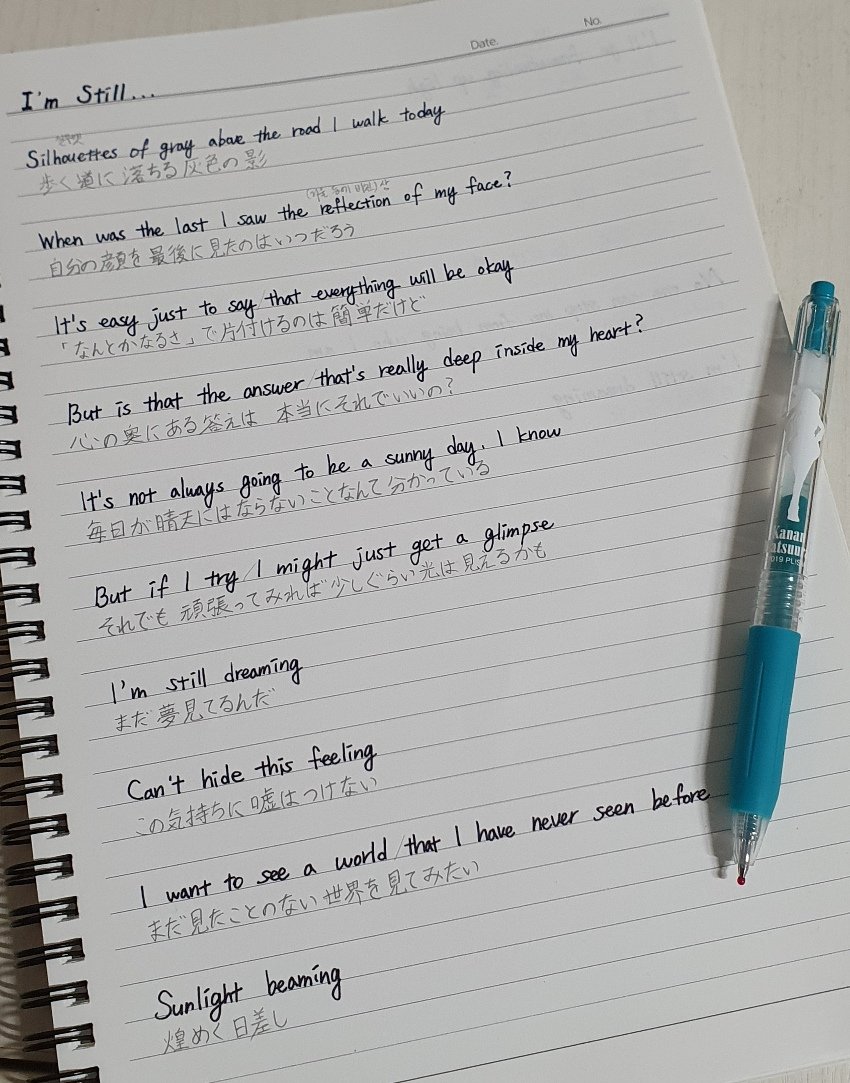 No.
Date.
I'm Still...
Silhouettes of gray above the road I walk today
歩く道に落ちる灰色の影
When was the last I saw the reflection of my face?
自分の顔を最後に見たのはいつだろう
It's easy just to say that everything will be okay
「なんとかなるさ」で片付けるのは簡単だけど
But is that the answer that's really deep inside my heart?
心の奥にある答えは 本当にそれでいいの?
It's not always going to be a sunny day, I know
毎日が晴天にはならないことなんて分かっている
But if I try I might just get a glimpse
それでも頑張ってみれば少しぐらい光は見えるかも
I'm still dreaming
まだ夢見てるんだ
Can't hide this feeling
この気持ちに嘘はつけない
I want to see a world that I have never seen before
まだ見たことのない世界を見てみたい
Sunlight beaming
煌めく日差し
Kanan